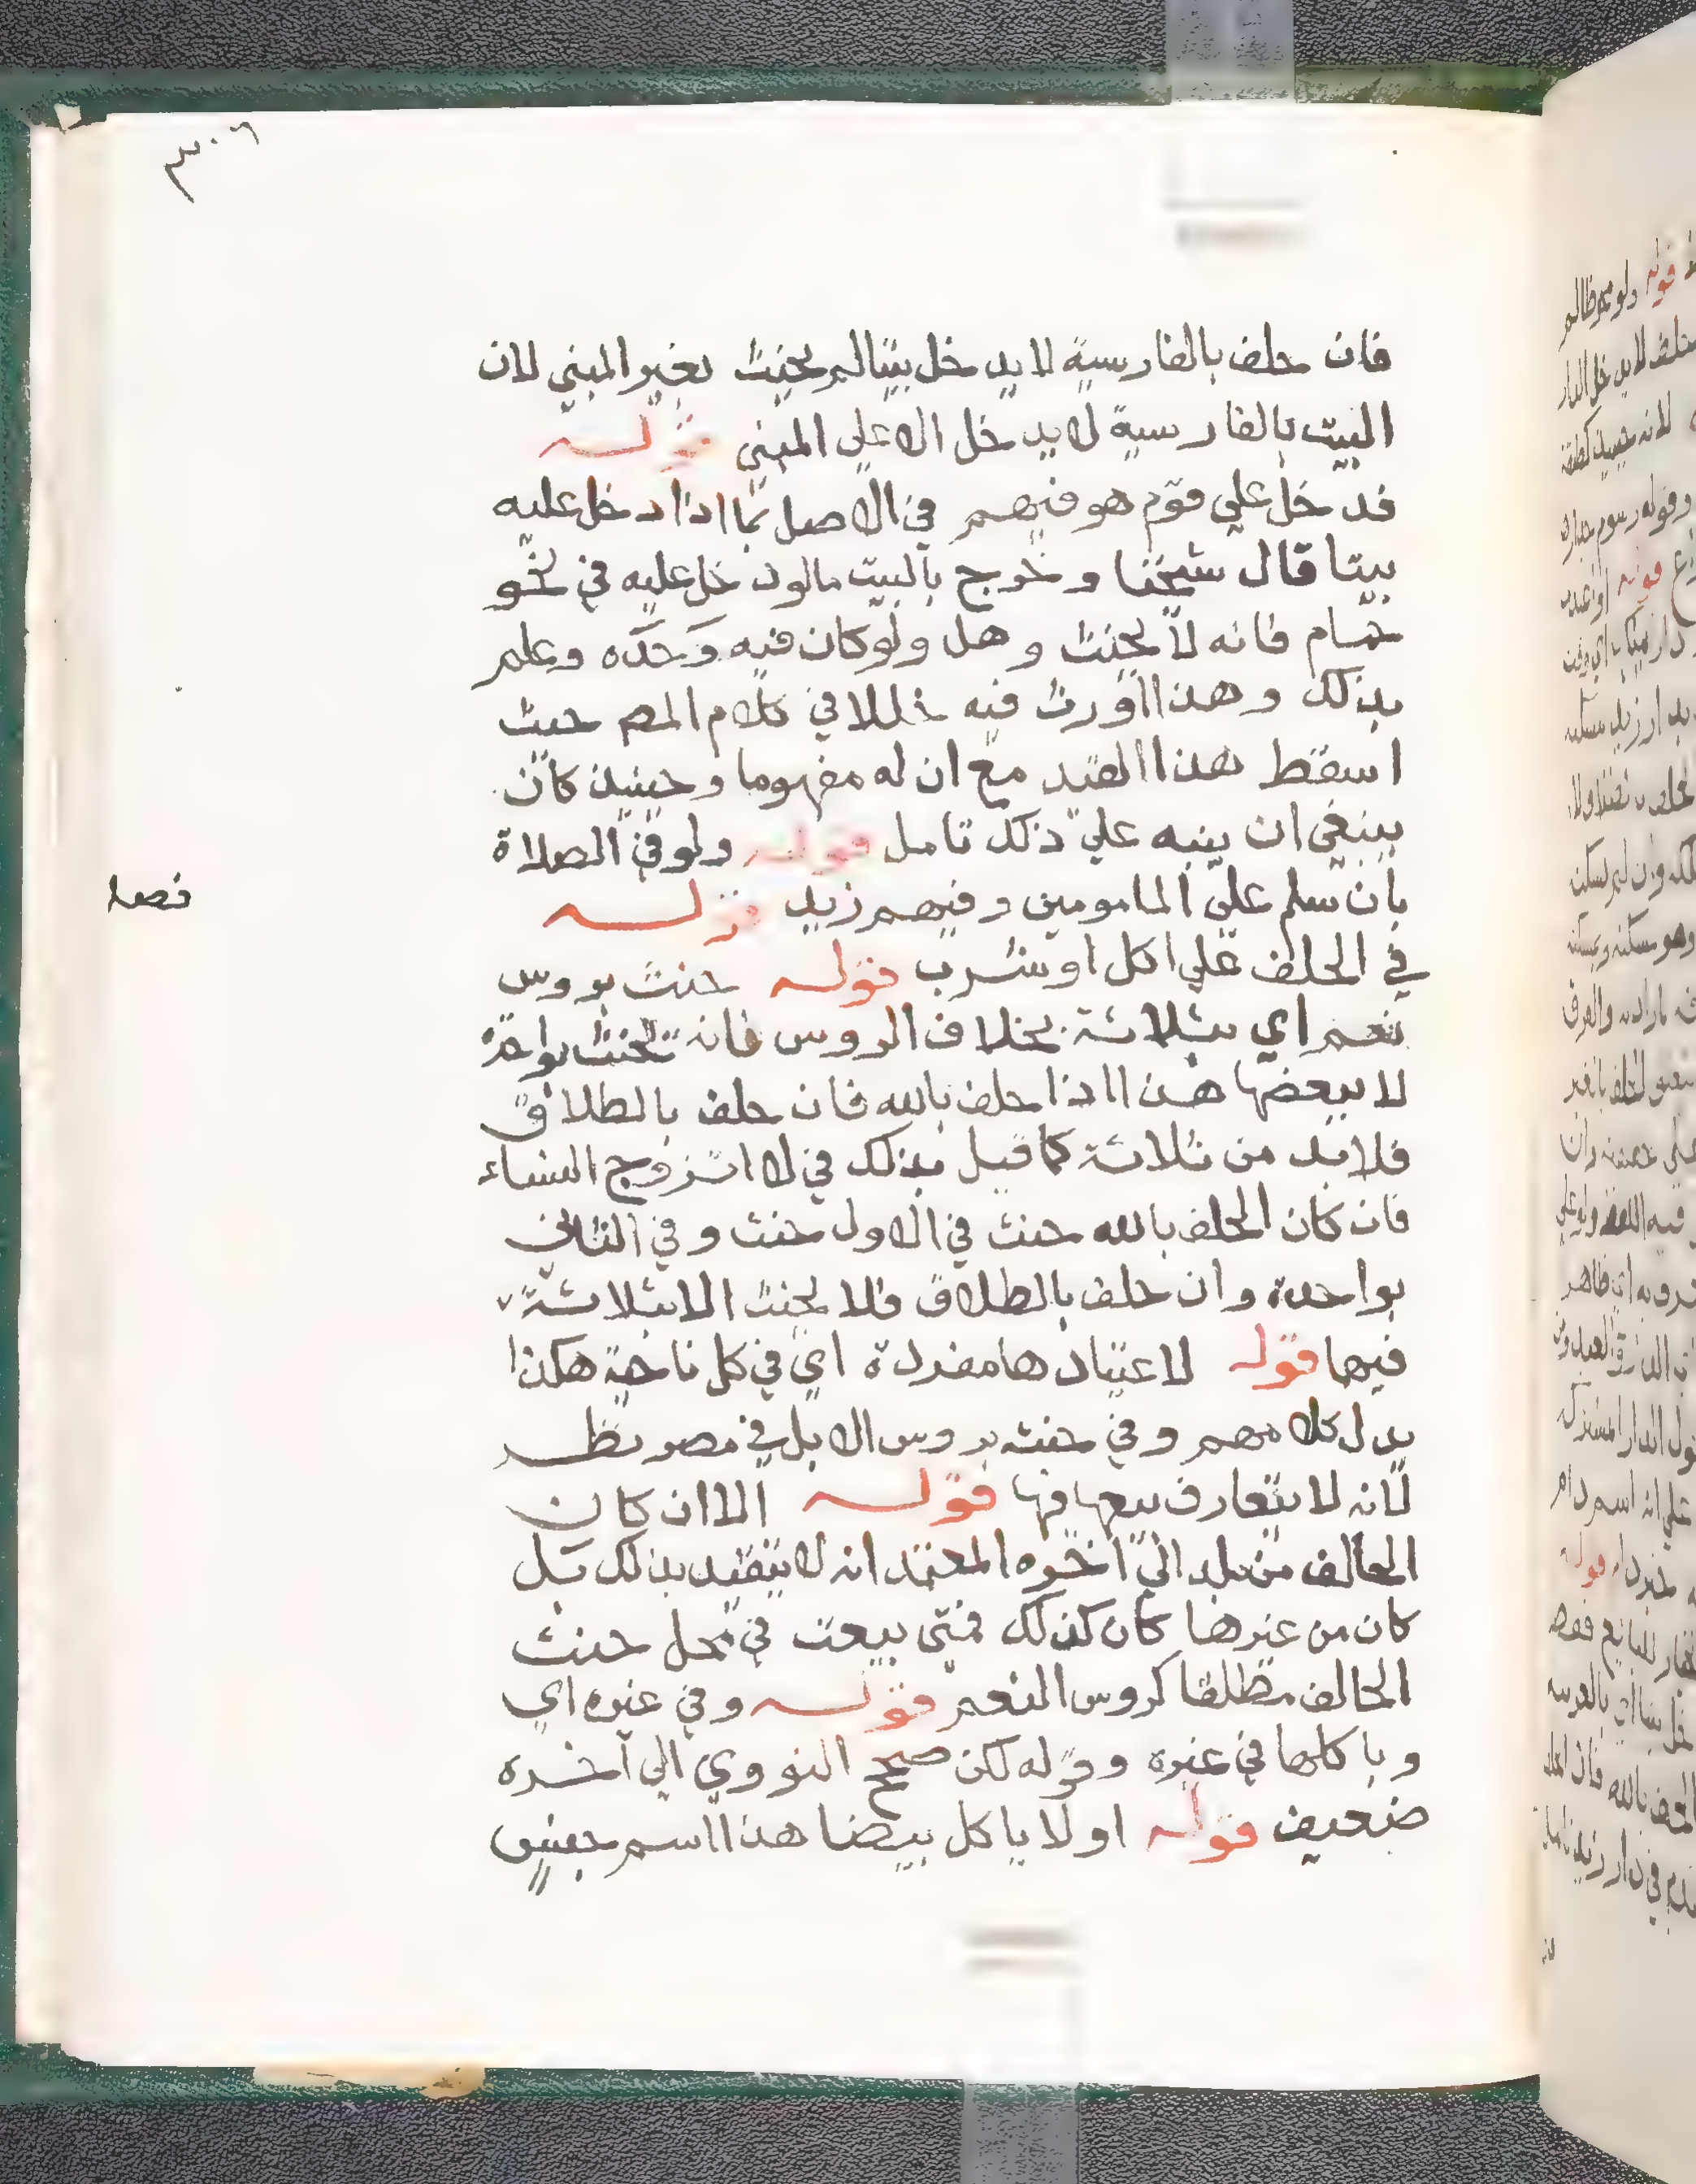 ٣٠٦
فان حلف بالفارسية لا يدخل بيتا لم يحنث بغير المبني لان
البيت بالفارسية لا يدخل الا علي المبني قوله
فدخل علي قوم هو فيهم في الاصل بما اذا دخل عليه
بيتا قال شيخنا وخرج بالبيت مالو دخل عليه في نحو
حمام فانه لا يحنث وهل ولو كان فيه وَحَدَه وعلم
بذلك وهذا اورث فيه خللا في كلام المص حيث
اسقط هذا القيد مع ان له مفهوما وحينيذ كان
ينبغي ان ينبه علي ذلك تامل قوله ولو في الصلاة
بان سلم علي المامومين وفيهم زيد قوله
فصل
في الحلف علي اكل او شرب قوله حنث بروس
نعم اي بثلاثة بخلاف الروس فانه يحنث بواحدة
لا ببعضها هذا اذا حلف بالله فان حلف بالطلاق
فلابد من ثلاثة كما قيل بذلك في لا اتزوج النساء
فان كان الحلف بالله حنث في الاول حنث وفي الثاني
بواحدة وان حلف بالطلاق فلا يحنث الا بثلاثة
فيها قوله لاعتيادها مفردة اي في كل ناحية هكذا
يدل كلامهم وفي حنثه بروس الابل في مصر نظر
لانه لا يتعارف بيعها فيها قوله الا ان كان
الحالف من بلد الي اخره المعتمد انه لا يتقيد بذلك بل
كان من غيرها كان كذلك فمتي بيعت في محل حنث
الحالف مطلقا كروس النعم قوله وفي غيره اي
وباكلها في غيره وقوله لكن صحح النووي الي اخره
ضعيف قوله او لا ياكل بيضا هذا اسم جنس